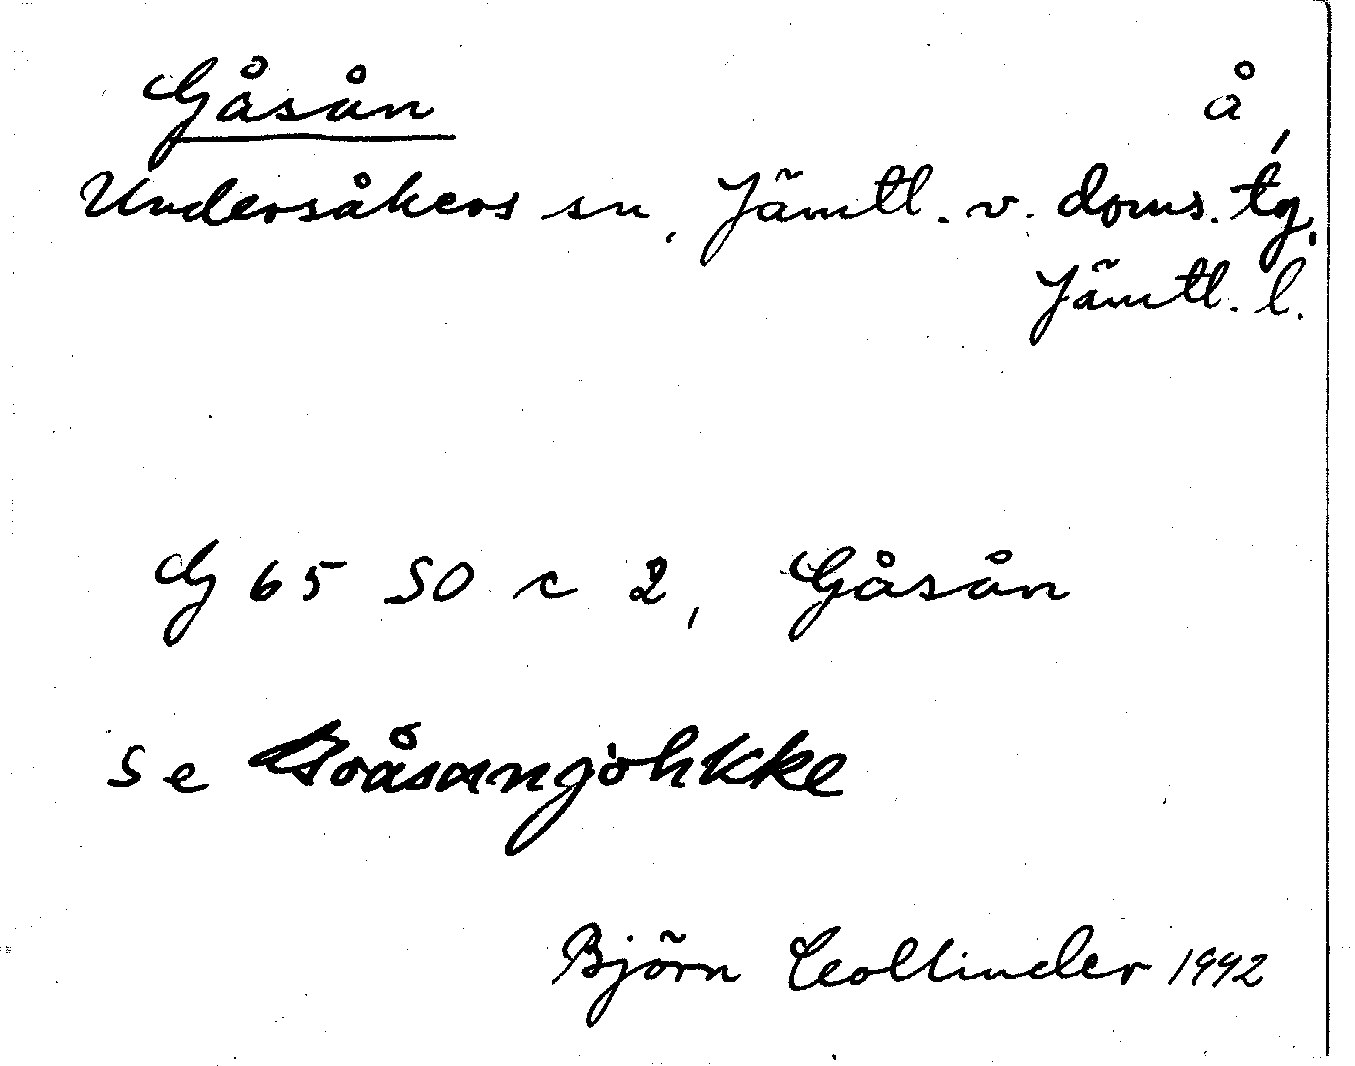 Gåsån å
Undersåkers sn, Jämtl. v. doms. tg,
Jämtl. l.
G 65 SO c 2, Gåsån
Se
Björn Collinder 1942